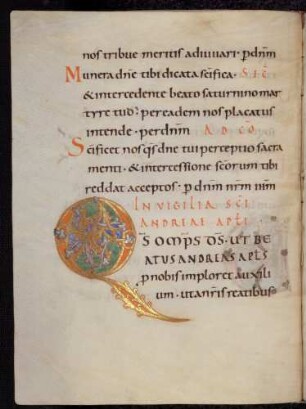 nos tribue meritis adiuuari · p dnm
Munera dne tibi dicata scifica · SIC
& intercedente beato saturnino mar
tyre tuo · per eadem nos placatus
intende · per dnm AD CO
Scificet nos qs dne tui perceptio sacra
menti · & intercessione scorum tibi
reddat acceptos · p dnm nrm ihm
IN VIGILIA SCI
ANDREAE APLI
QS OMPS DS · UT BE
ATUS ANDREAS APLS
p nobis imploret auxili
um · ut a nris reatibus